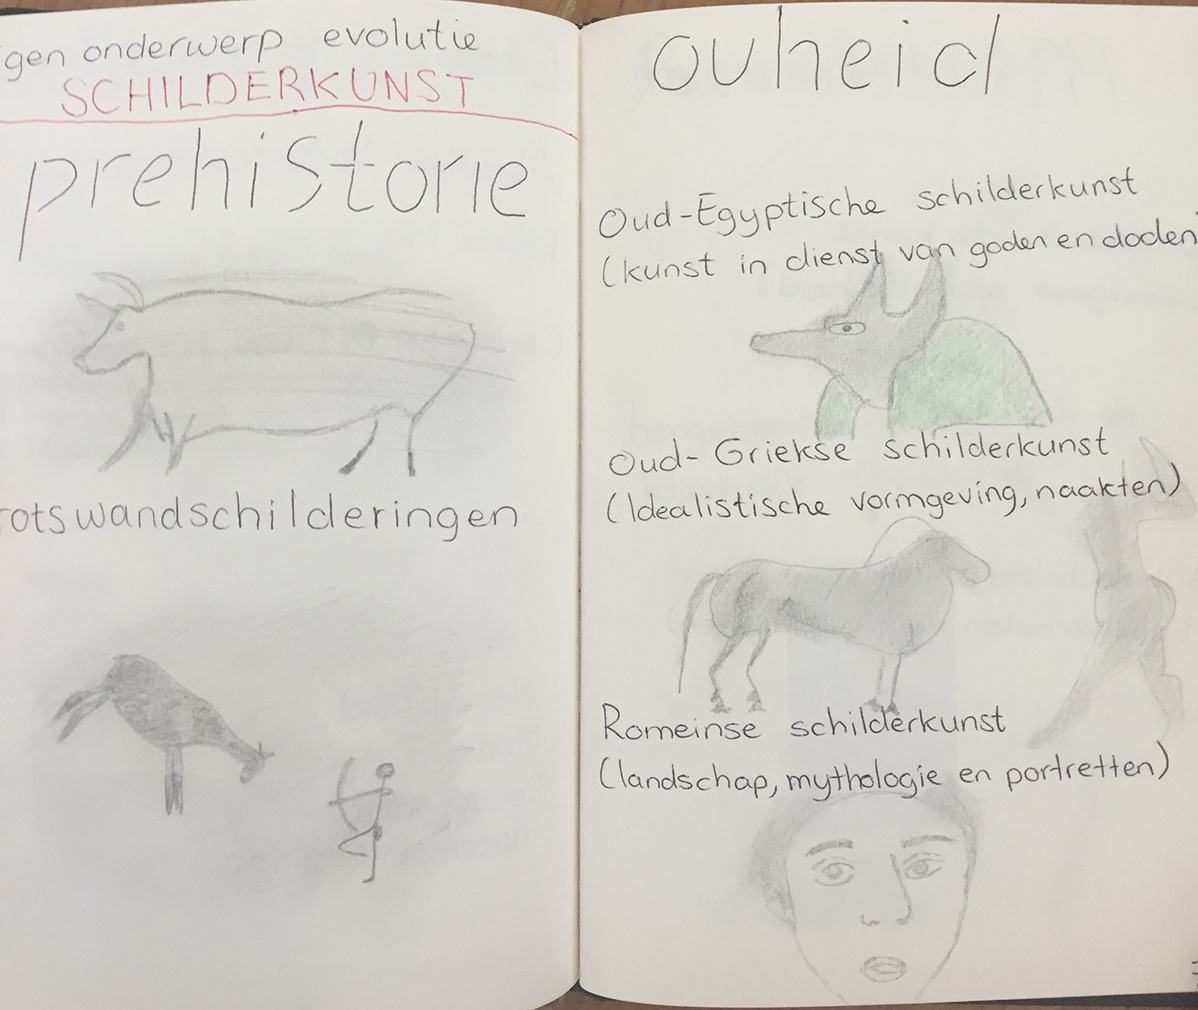 gen onderwerp evolutie
SCHILDERKUNST
prehistorie
rotswandschilderingen
ouheid
Oud-Egyptische schilderkunst
(kunst in dienst van goden en doden)
Oud-Griekse schilderkunst
(Idealistische vormgeving, naakten)
Romeinse schilderkunst
(landschap, mythologie en portretten)